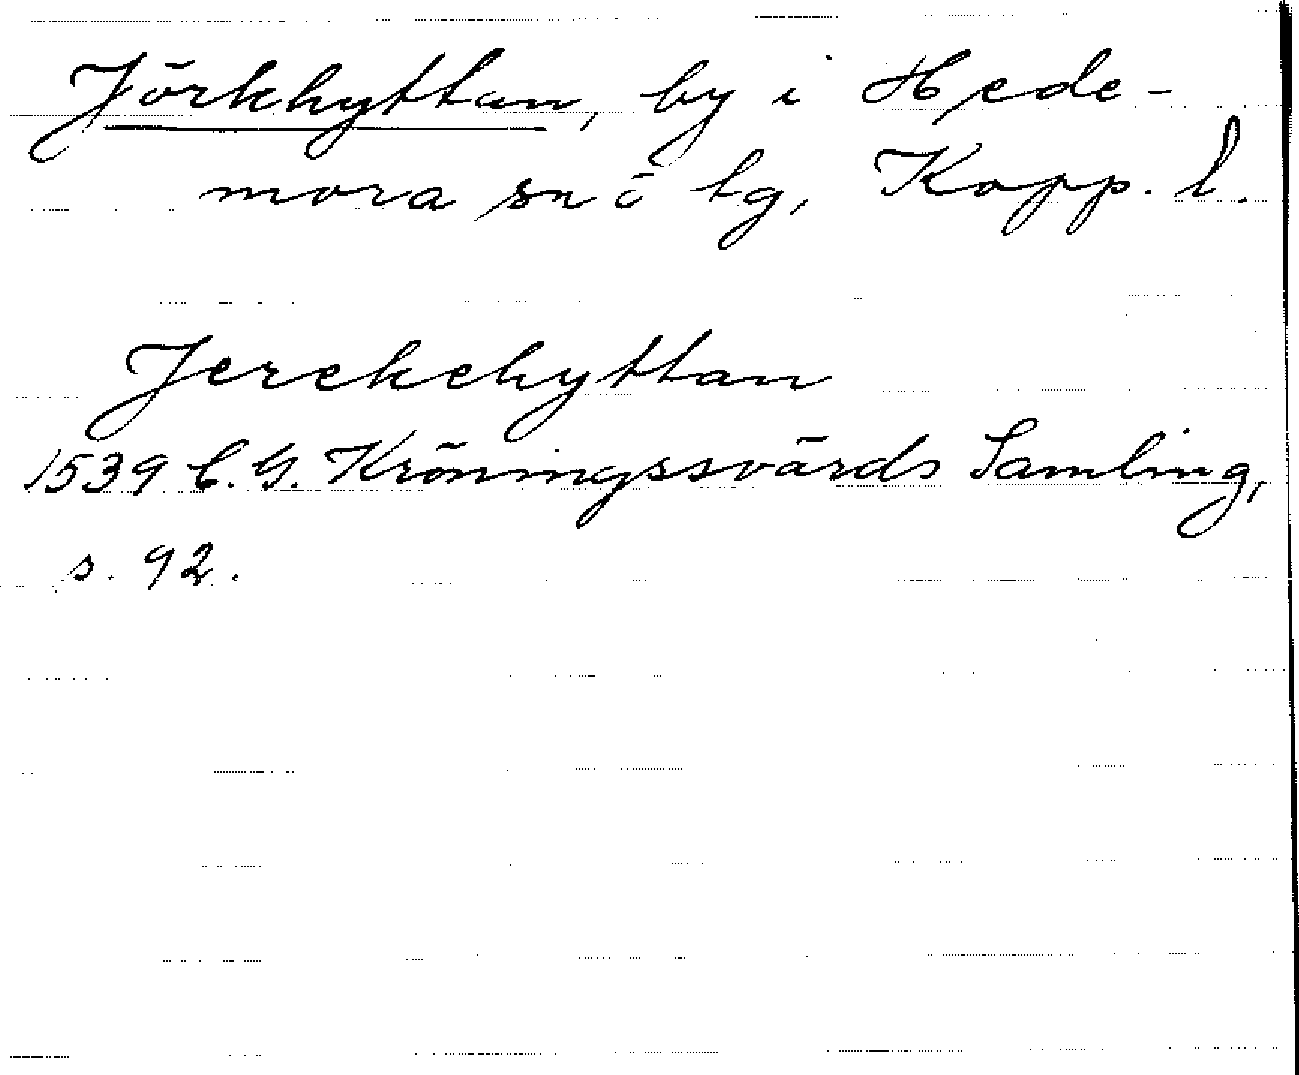 Jörkhyttan, by i Hede-
mora sn o tg, Kopp. l.
Jerekehyttan
1539 C. G. Kröningssvärds Samling,
s. 92.